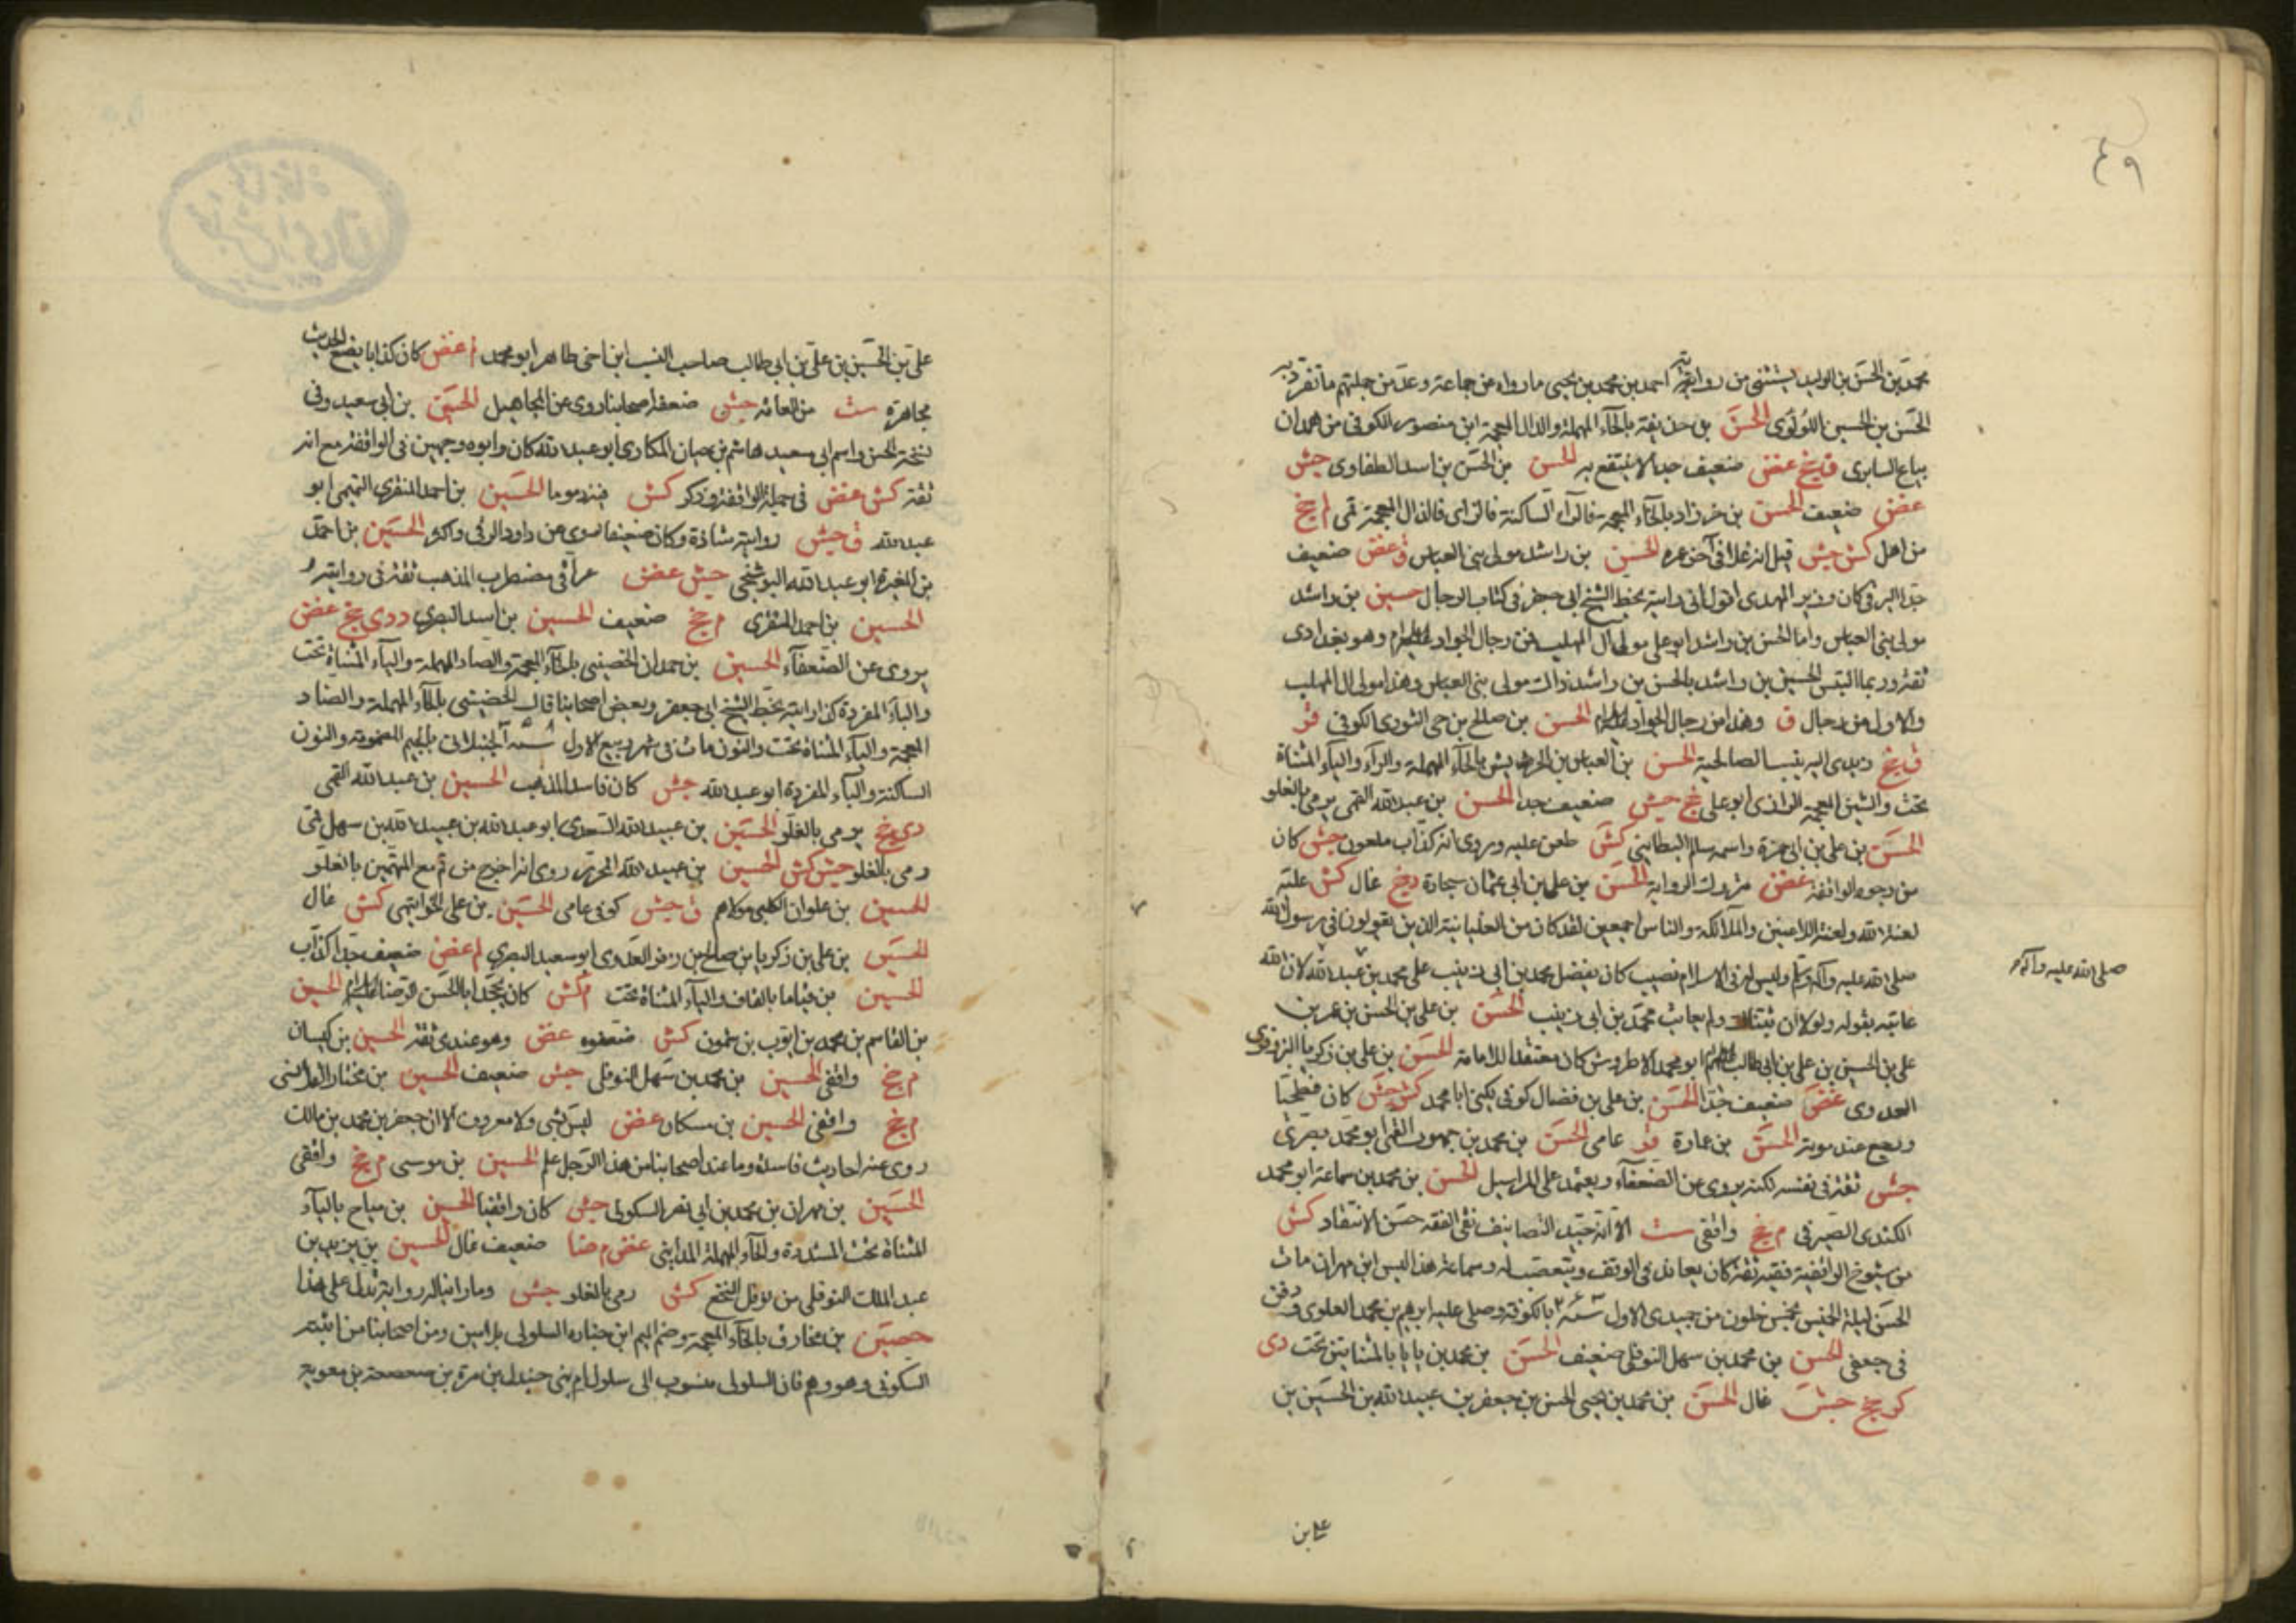 ٤٩
محمد بن الحسن بن الوليد يستثنى من رواية احمد بن محمد بن يحيى ما رواه عن جماعة وعد من جملتهم ما تفرد به
الحسن بن الحسين اللؤلؤى الحسن بن حذيفة بالحاء المهملة والذال المعجمة ابن منصور الكوفى من همدان
بياع السابرى ق خ غض ضعيف جدا لا ينتفع به الحسن بن الحسن بن اسد الطفاوى جش
غض ضعيف الحسن بن خرزاد بالخاء المعجمة فالراء الساكنة فالزاى فالذال المعجمة قمى لم جخ
من اهل كش جش قيل انه غلا فى آخر عمره الحسن بن راشد مولى بنى العباس ق غض ضعيف
جدا البرقى كان وزير المهدى اقول انى رايته بخط الشيخ ابى جعفر فى كتاب الرجال حسين بن راشد
مولى بنى العباس واما الحسن بن راشد ابو على مولى آل المهلب فمن رجال الجواد وهو بغدادى
ثقة وربما التبس الحسين بن راشد بالحسن بن راشد ذاك مولى بنى العباس وهذا مولى آل المهلب
والاول من رجال ق وهذا من رجال الجواد الحسن بن صالح بن حى الثورى الكوفى قر
ق جخ زيدى اليه ينسب الصالحية الحسن بن العباس بن الحريش بالحاء المهملة والراء والياء المثناة
تحت والشين المعجمة الرازى ابو على جخ جش ضعيف جدا الحسن بن عبد الله القمى يرمى بالغلو
الحسن بن على بن ابى حمزة واسمه سالم البطائنى كش طعن عليه وروى انه كذاب ملعون جش كان
من وجوه الواقفة غض متروك الرواية الحسن بن على بن ابى عثمان سجادة دى جخ غال كش عليه
لعنة الله ولعنة اللاعنين والملائكة والناس اجمعين لقد كان من العليائية الذين يقولون فى رسول الله
صلى الله عليه وآله وسلم وليس له فى الاسلام نصيب كان يفضل محمد بن ابى زينب على محمد بن عبد الله لان الله
صلى الله عليه وآله
عاتبه بقوله ولولا ان ثبتناك ولم يعاتب محمد بن ابى زينب الحسن بن على بن الحسن بن عمر بن
على بن الحسين بن على بن ابى طالب ابو محمد الاطروش كان معتقدا للامامة الحسن بن على بن زكريا البزوفرى
العدوى غض ضعيف جدا الحسن بن على بن فضال كوفى يكنى ابا محمد كش جش كان فطحيا
ورجع عند موته الحسن بن عمارة قر عامى الحسن بن محمد بن جمهور القمى ابو محمد بصرى
جش ثقة فى نفسه لكنه يروى عن الضعفاء ويعتمد على المراسيل الحسن بن محمد بن سماعة ابو محمد
الكندى الصيرفى م جخ واقفى ست الا انه جيد التصانيف نقى الفقه حسن الانتقاد كش
من شيوخ الواقفية فقيه ثقة كان يعاند فى الوقف ويتعصب له وسماعة هذا ليس ابن مهران مات
الحسن ليلة الخميس لخمس خلون من جمدى الاول سنة بالكوفة وصلى عليه ابرهيم بن محمد العلوى ودفن
فى جعفى الحسن بن محمد بن سهل النوفلى ضعيف الحسن بن محمد بن بابا بالمثناتين تحت دى
كر جخ جش غال الحسن بن محمد بن يحيى الحسن بن جعفر بن عبيد الله بن الحسين بن
على بن
على بن الحسين بن على بن ابى طالب صاحب النسب ابن اخى طاهر ابو محمد لم غض كان كذابا يضع الحديث
مجاهرة ست من العامة جش ضعفه اصحابنا روى عن المجاهيل الحسين بن ابى سعيد وفى
نسخة الحسن واسم ابى سعيد هاشم بن حيان المكارى ابو عبد الله كان وابوه وجهين فى الواقفة مع انه
ثقة كش غض فى جملة الواقفة وذكر كش فيه ذموما الحسين بن احمد المنقرى التميمى ابو
عبد الله ق جش روايته شاذة وكان ضعيفا روى عن داود الرقى واكثر الحسين بن احمد
بن المغيرة ابو عبد الله البوشنجى جش غض عراقى مضطرب المذهب ثقة فى روايته
الحسين بن احمد المنقرى م جخ ضعيف الحسين بن اسد البصرى د دى جخ غض
يروى عن الضعفاء الحسين بن حمدان الخصيبى بالخاء المعجمة والصاد المهملة والياء المثناة تحت
والباء المفردة كذا رايته بخط الشيخ ابى جعفر وبعض اصحابنا قال الحضينى بالحاء المهملة والضاد
المعجمة والياء المثناة تحت والنون مات فى شهر ربيع الاول سنة الجنبلانى بالجيم المضمومة والنون
الساكنة والباء المفردة ابو عبد الله جش كان فاسد المذهب الحسين بن عبد الله القمى
دى جخ يرمى بالغلو الحسين بن عبيد الله السعدى ابو عبد الله بن عبيد الله بن سهل قمى
رمى بالغلو جش كش الحسين بن عبيد الله المحرر روى انه اخرج من قم مع المتهمين بالغلو
الحسين بن علوان الكلبى مولاهم ق جش كوفى عامى الحسين بن على الخواتيمى كش غال
الحسين بن على بن زكريا بن صالح بن زفر العدوى ابو سعيد البصرى لم غض ضعيف جدا كذاب
الحسين بن قياما بالقاف والياء المثناة تحت م كش كان يجحد ابا الحسن الرضا الحسين
بن القاسم بن محمد بن ايوب بن شمون كش ضعفوه غض وهو عندى ثقة الحسين بن كيسان
م جخ واقفى الحسين بن محمد بن سهل النوفلى جش ضعيف الحسين بن مختار القلانسى
م جخ واقفى الحسين بن مسكان غض ليس بشى ولا معروف الا ان جعفر بن محمد بن مالك
روى عنه احاديث فاسدة وما عند اصحابنا من هذا الرجل علم الحسين بن موسى م جخ واقفى
الحسين بن مهران بن محمد بن ابى نصر السكونى جش كان واقفيا الحسين بن مياح بالياء
المثناة تحت المشددة والحاء المهملة المداينى غض م ضا ضعيف غال الحسين بن يزيد بن
عبد الملك النوفلى من نوفل النخع كش رمى بالغلو جش وما راينا له رواية تدل على هذا
حصين بن مخارق بالخاء المعجمة وضم الميم ابن جنادة السلولى بلامين ومن اصحابنا من اثبته
السكونى وهو وهم فان السلولى منسوب الى سلول ام بنى جندل بن مرة بن صعصعة بن معوية